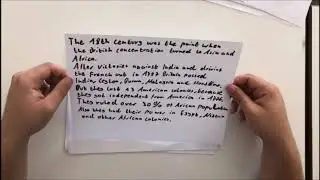 The 18th century was the point when
the British concentration turned to Asia and
Africa.
After victories against India and driving
the French out in 1757 Britain ruled
India, Ceylon, Burma, Malaysia and
But they lost 13 American colonies, because
they got independent from America in
They ruled over 30% of African population
Also they had their power in Egypt, Nigeria
and other African colonies.